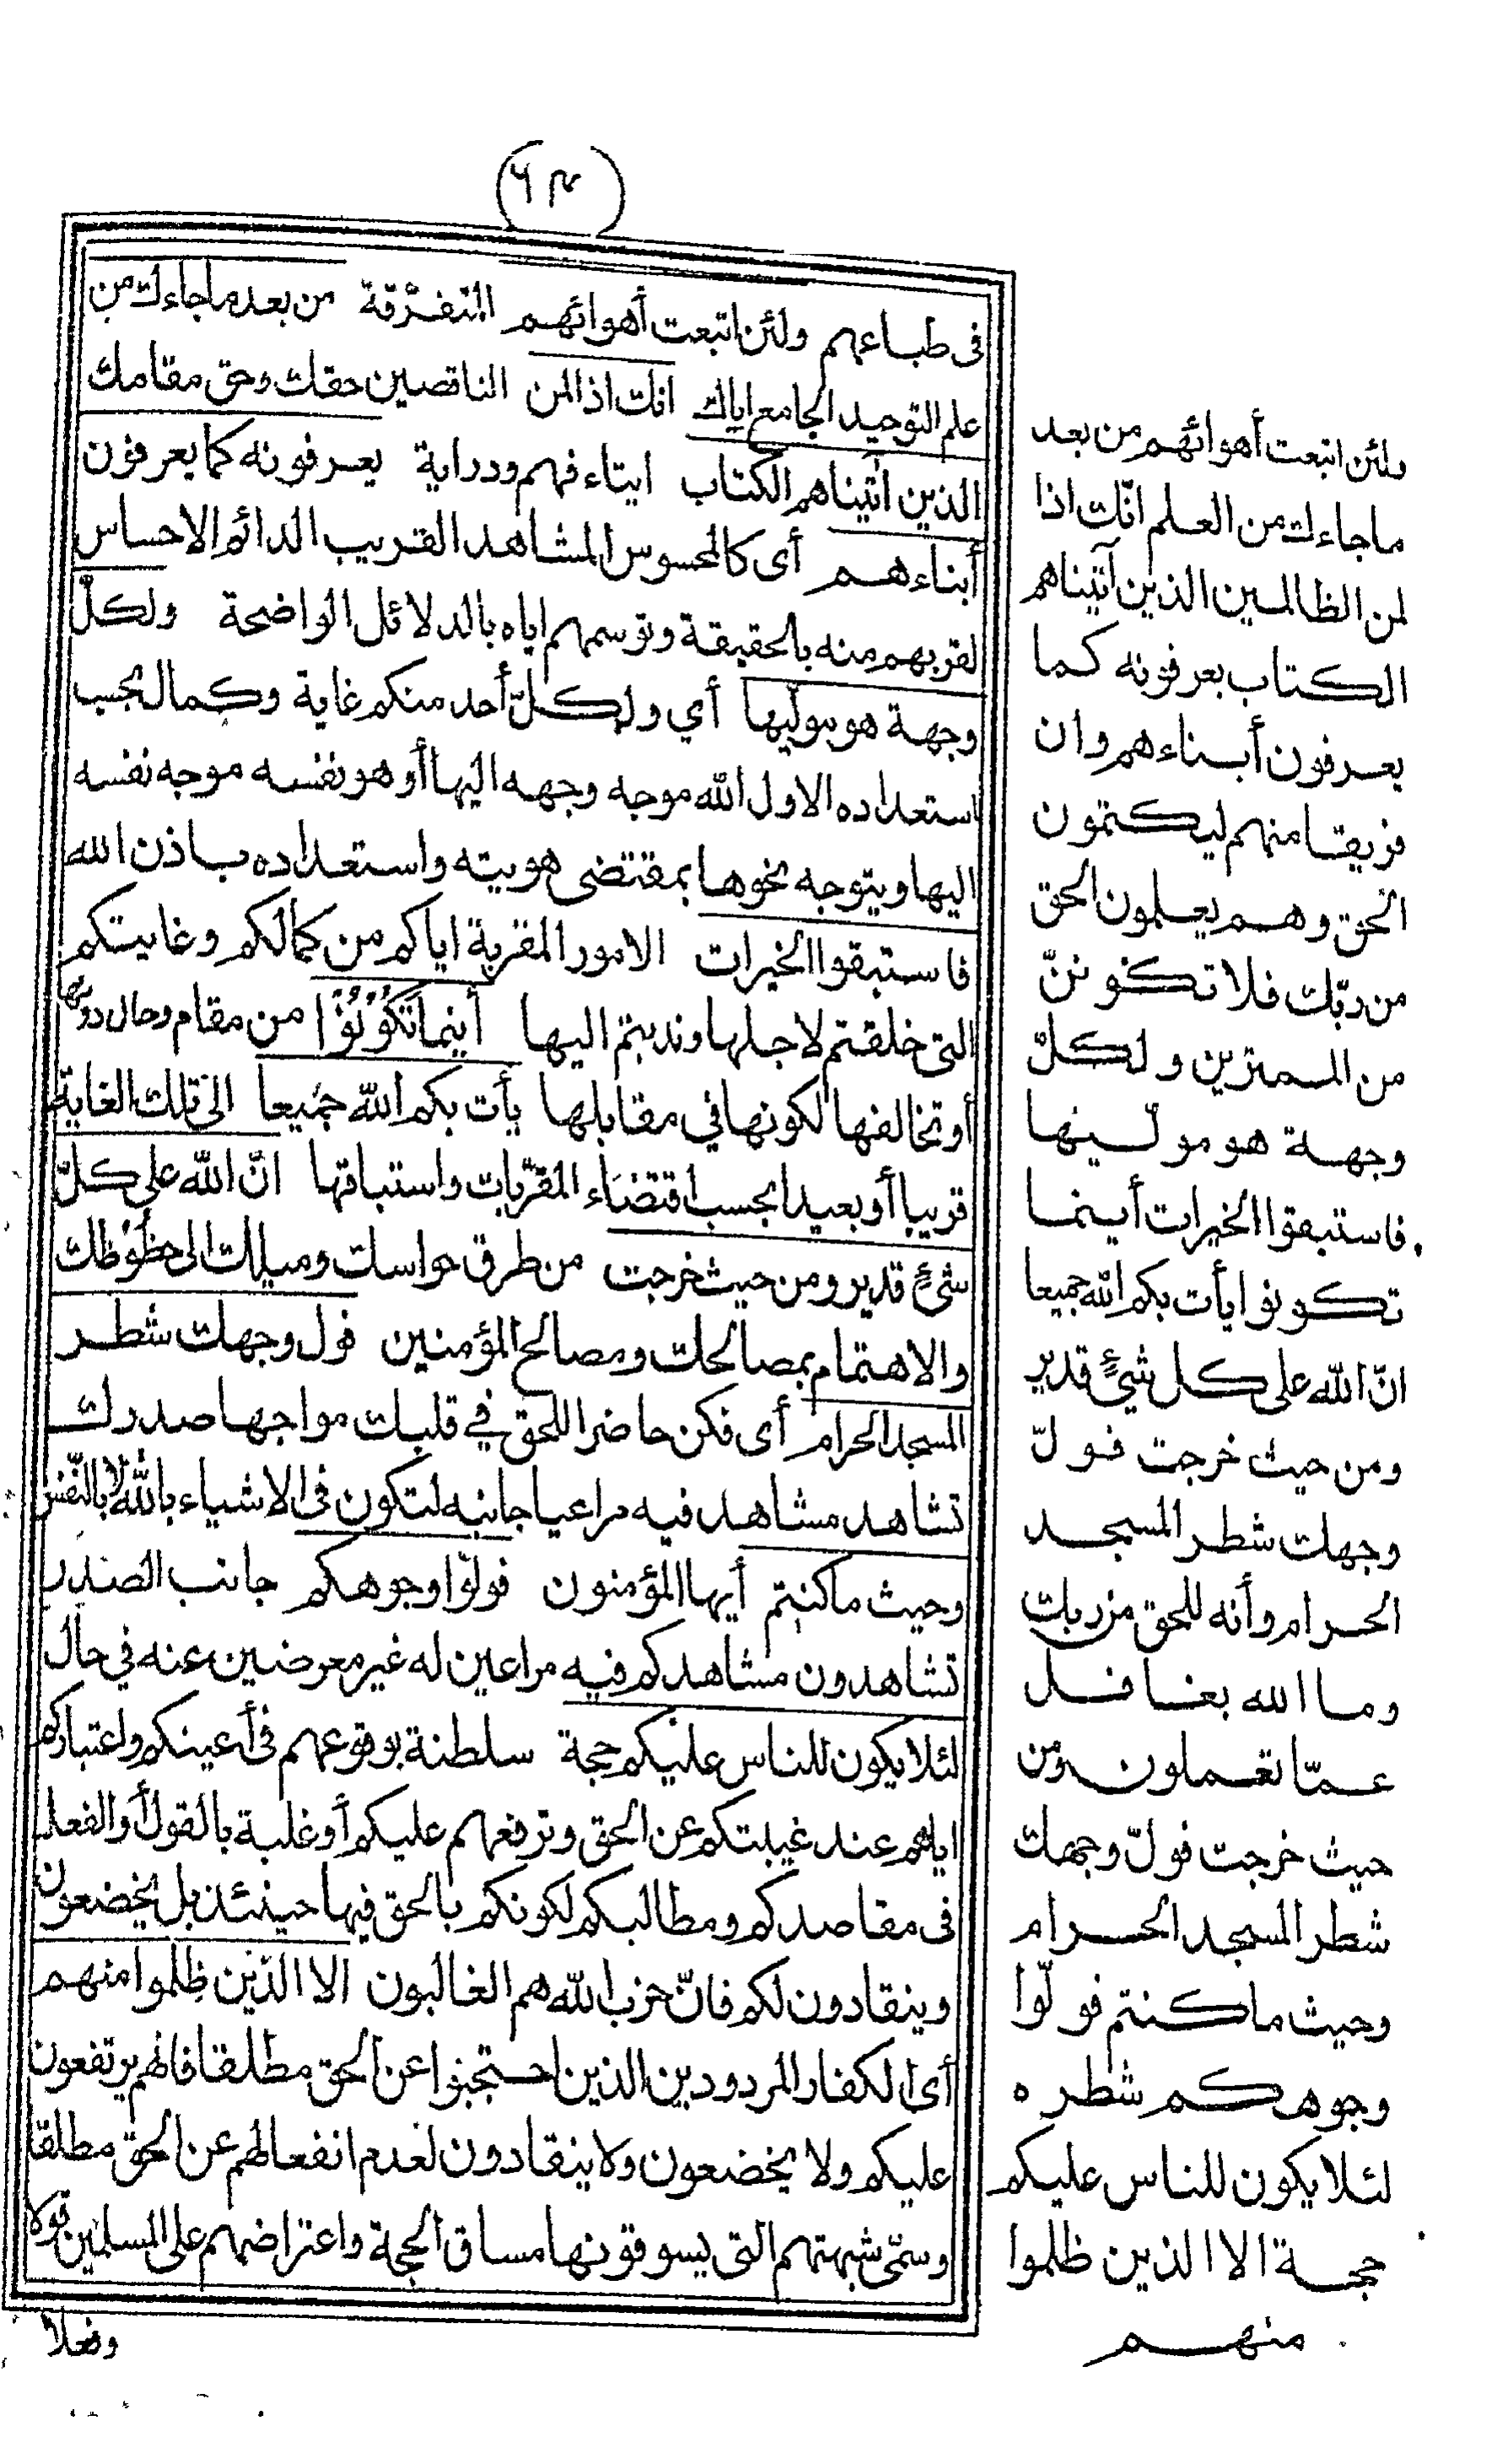 (٦٣)
فى طباعهم ولئن اتبعت أهوائهم المتفرّقة من بعد ما جاءك من
علم التوحيد الجامع اياك انك اذا لمن الناقصين حقك وحق مقامك
الذين آتيناهم الكتاب ايتاء فهم ودراية يعرفونه كما يعرفون
أبناءهم أى كالمحسوس المشاهد القريب الدائم الاحساس
لقربهم منه بالحقيقة وتوسمهم اياه بالدلائل الواضحة ولكلّ
وجهة هو مولّيها أي ولكلّ أحد منكم غاية وكمال بحسب
استعداده الاول الله موجه وجهه اليها أو هو نفسه موجه نفسه
اليها ويتوجه نحوها بمقتضى هويته واستعداده باذن الله
فاستبقوا الخيرات الامور المقربة اياكم من كمالكم وغايتكم
التى خلقتم لاجلها وندبتم اليها أينما تَكُوْنُوْا من مقام وحال دونها
أو تخالفها لكونها في مقابلها يأت بكم الله جميعا الى تلك الغاية
قريبا أو بعيدا بحسب اقتضاء المقرّبات واستباقها انّ الله على كلّ
شىءٍ قدير ومن حيث خرجت من طرق حواسك وميلك الى حظوظك
والاهتمام بمصالحك ومصالح المؤمنين فول وجهك شطر
المسجد الحرام أى فكن حاضرا للحق في قلبك مواجها صدرك
تشاهد مشاهد فيه مراعيا جانبه لتكون فى الاشياء بالله لا بالنّفس
وحيث ما كنتم أيها المؤمنون فولّوا وجوهكم جانب الصدر
تشاهدون مشاهدكم فيه مراعين له غير معرضين عنه في حال
لئلا يكون للناس عليكم حجة سلطنة بوقوعهم فى أعينكم واعتباركم
اياهم عند غيبتكم عن الحق وترفعهم عليكم أو غلبة بالقول أو الفعل
فى مقاصدكم ومطالبكم لكونكم بالحق فيها حينئذ بل يخضعون
وينقادون لكم فانّ حزب الله هم الغالبون الا الذين ظلموا منهم
أى الكفار المردودين الذين احتجبوا عن الحق مطلقا فانهم يرتفعون
عليكم ولا يخضعون ولا ينقادون لعدم انفعالهم عن الحق مطلقا
وسمّى شبهتهم التى يسوقونها مساق الحجة واعتراضهم على المسلمين قولا
وفعلا
ولئن اتبعت أهوائهم من بعد
ما جاءك من العلم انّك اذا
لمن الظالمين الذين آتيناهم
الكتاب يعرفونه كما
يعرفون أبناءهم وان
فريقا منهم ليكتمون
الحق وهم يعلمون الحق
من ربّك فلا تكوننّ
من الممترين ولكلّ
وجهة هو مولّيها
فاستبقوا الخيرات أينما
تكونوا يأت بكم الله جميعا
انّ الله على كل شيءٍ قدير
ومن حيث خرجت فولّ
وجهك شطر المسجد
الحرام وأنه للحق من ربك
وما الله بغافل
عمّا تعملون ومن
حيث خرجت فولّ وجهك
شطر المسجد الحرام
وحيث ما كنتم فولّوا
وجوهكم شطره
لئلا يكون للناس عليكم
حجة الا الذين ظلموا
منهم